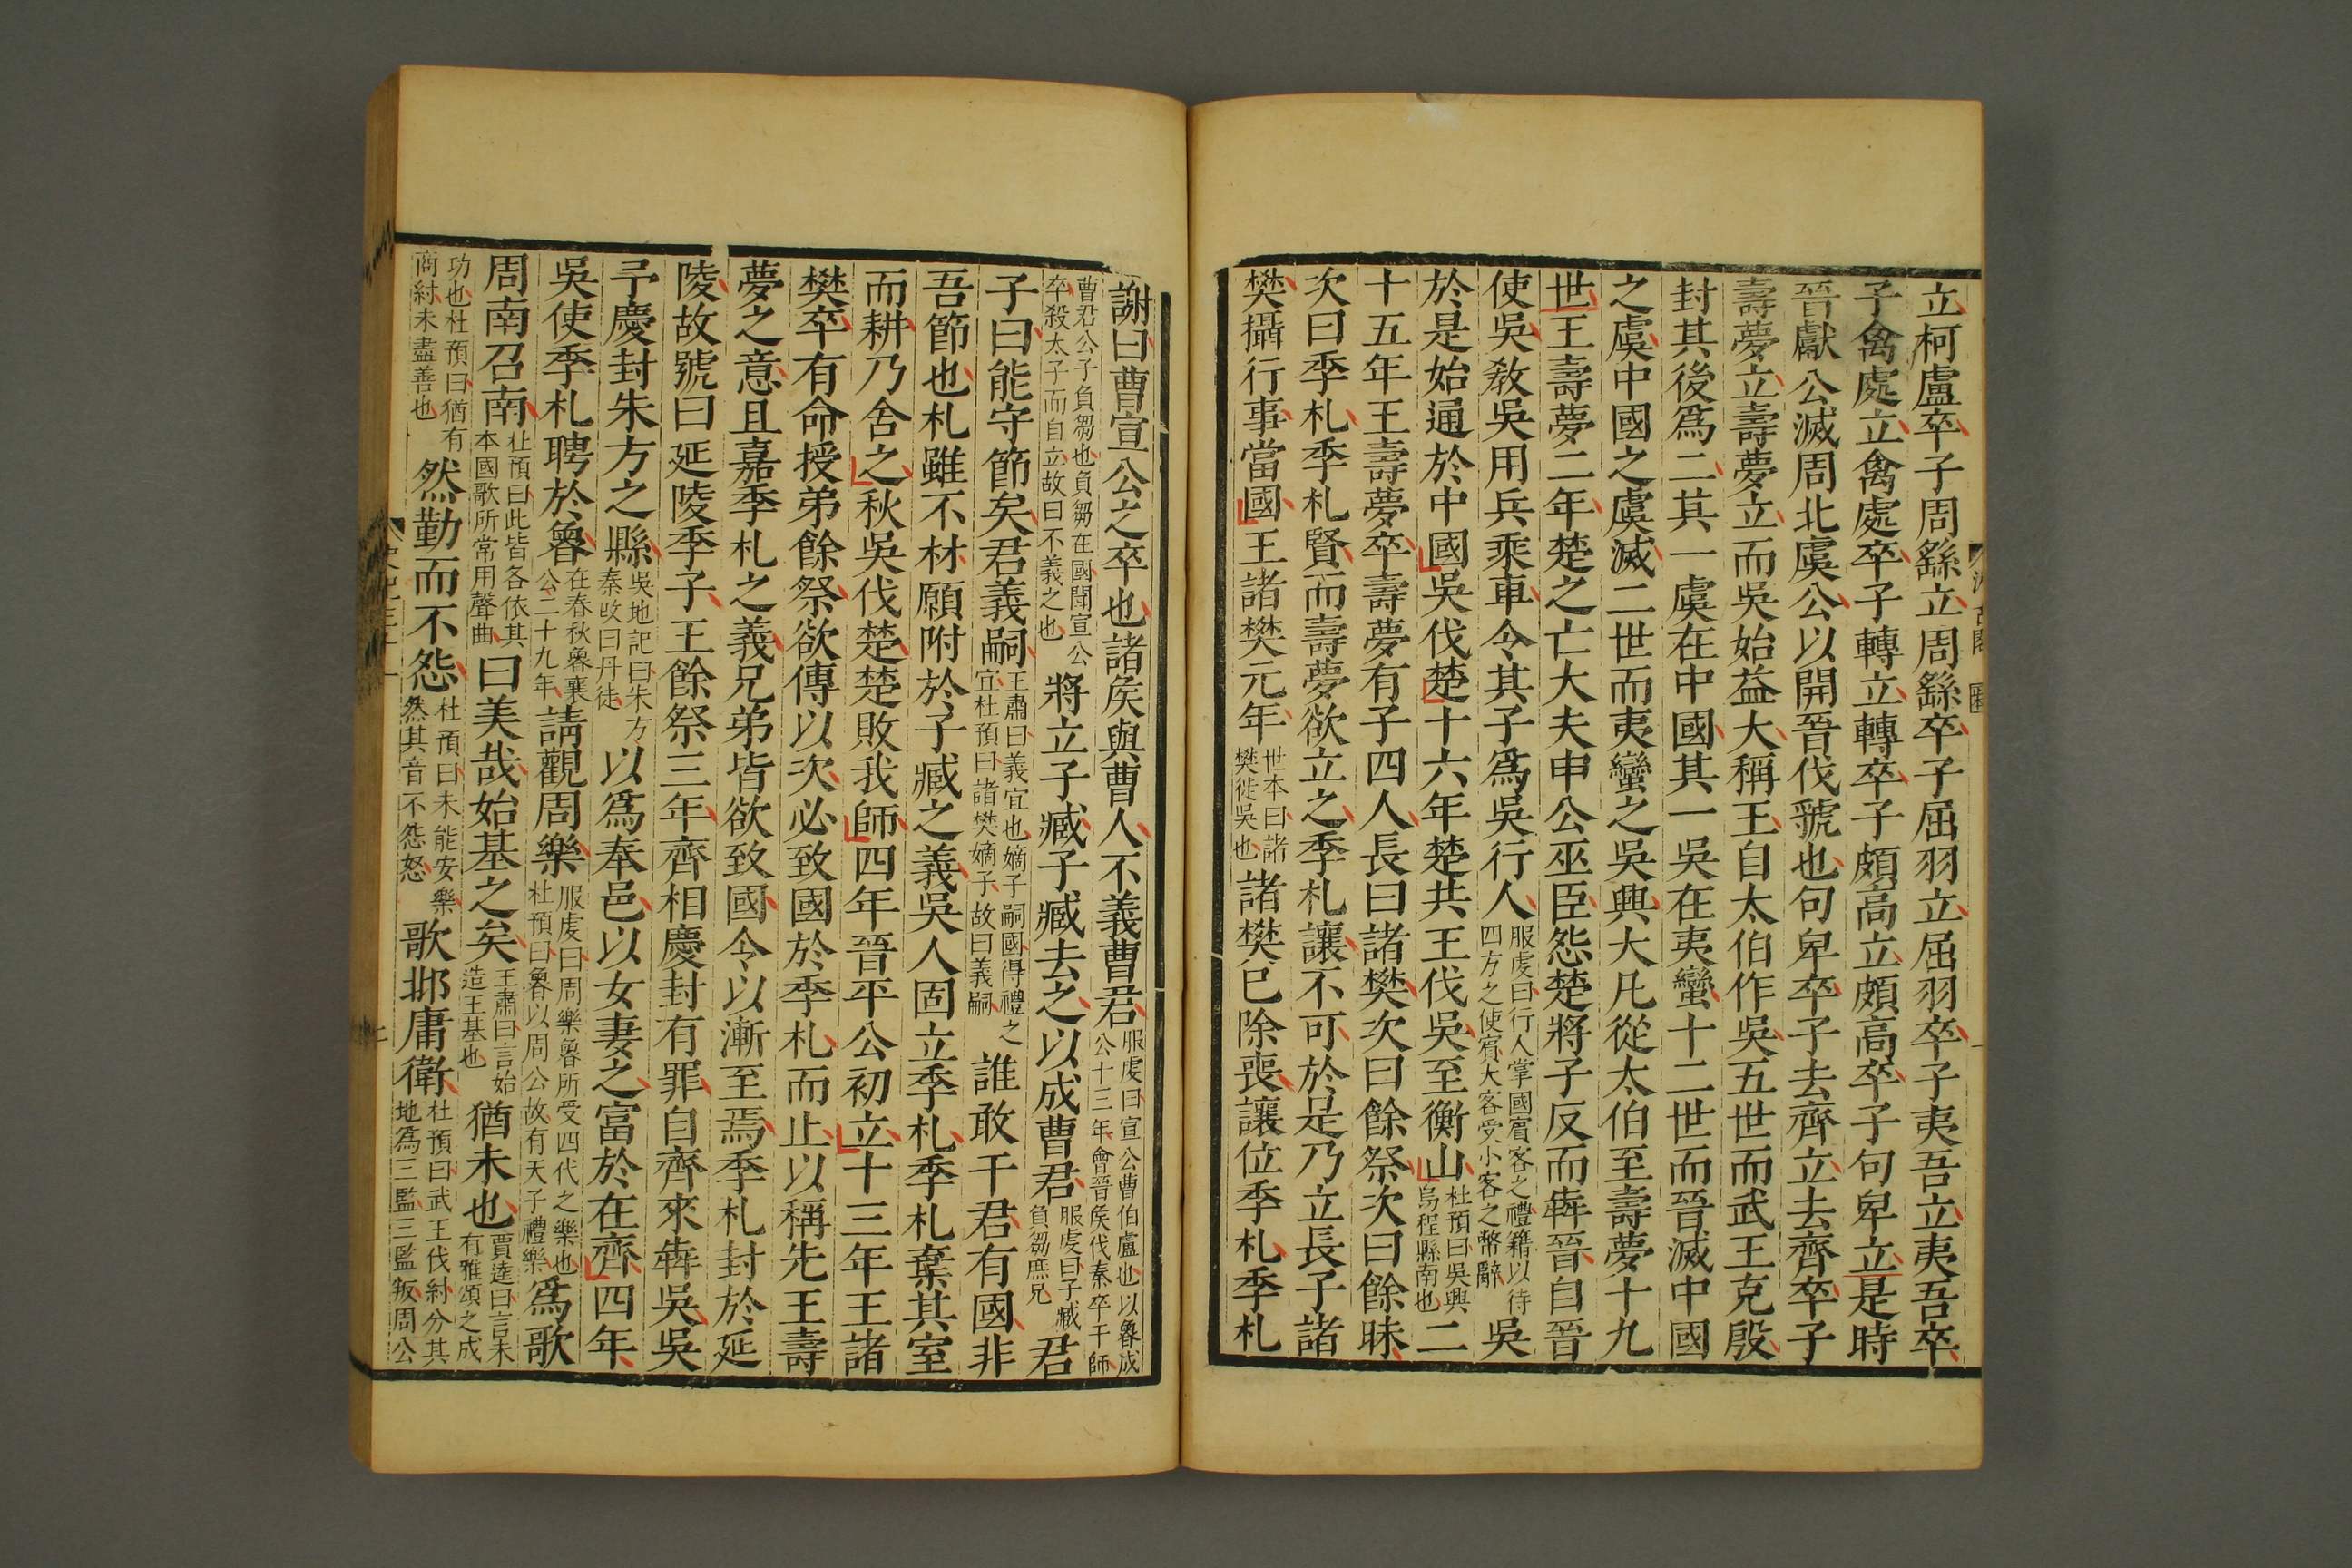 立柯盧卒子周繇立周繇卒子屈羽立屈羽卒子夷吾立夷吾卒
子禽處立禽處卒子轉立轉卒子頗高立頗高卒子句卑立是時
晉獻公滅周北虞公以開晉伐虢也句卑卒子去齊立去齊卒子
壽夢立壽夢立而吳始益大稱王自太伯作吳五世而武王克殷
封其後爲二其一虞在中國其一吳在夷蠻十二世而晉滅中國
之虞中國之虞滅二世而夷蠻之吳興大凡從太伯至壽夢十九
世王壽夢二年楚之亡大夫申公巫臣怨楚將子反而犇晉自晉
使吳敎吳用兵乘車令其子爲吳行人服虔曰行人掌國賓客之禮籍以待四方之使賓大客受小客之幣辭吳
於是始通於中國吳伐楚十六年楚共王伐吳至衡山杜預曰吳興烏程縣南也二
十五年王壽夢卒壽夢有子四人長曰諸樊次曰餘祭次曰餘眛
次曰季札季札賢而壽夢欲立之季札讓不可於是乃立長子諸
樊攝行事當國王諸樊元年世本曰諸樊徙吳也諸樊已除喪讓位季札季札
謝曰曹宣公之卒也諸矦與曹人不義曹君服虔曰宣公曹伯盧也以魯成公十三年會晉矦伐秦卒于師
曹君公子負芻也負芻在國聞宣公卒殺太子而自立故曰不義之也將立子臧子臧去之以成曹君服虔曰子臧負芻庶兄君
子曰能守節矣君義嗣王肅曰義宜也嫡子嗣國得禮之宜杜預曰諸樊嫡子故曰義嗣誰敢干君有國非
吾節也札雖不材願附於子臧之義吳人固立季札季札棄其室
而耕乃舍之秋吳伐楚楚敗我師四年晉平公初立十三年王諸
樊卒有命授弟餘祭欲傳以次必致國於季札而止以稱先王壽
夢之意且嘉季札之義兄弟皆欲致國令以漸至焉季札封於延
陵故號曰延陵季子王餘祭三年齊相慶封有罪自齊來犇吳吳
予慶封朱方之縣吳地記曰朱方秦改曰丹徒以爲奉邑以女妻之富於在齊四年
吳使季札聘於魯在春秋魯襄公二十九年請觀周樂服虔曰周樂魯所受四代之樂也杜預曰魯以周公故有天子禮樂爲歌
周南召南杜預曰此皆各依其本國歌所常用聲曲曰美哉始基之矣王肅曰言始造王基也猶未也賈逵曰言未有雅頌之成
功也杜預曰猶有商紂未盡善也然勤而不怨杜預曰未能安樂然其音不怨怒歌邶庸衛杜預曰武王伐紂分其地爲三監三監叛周公